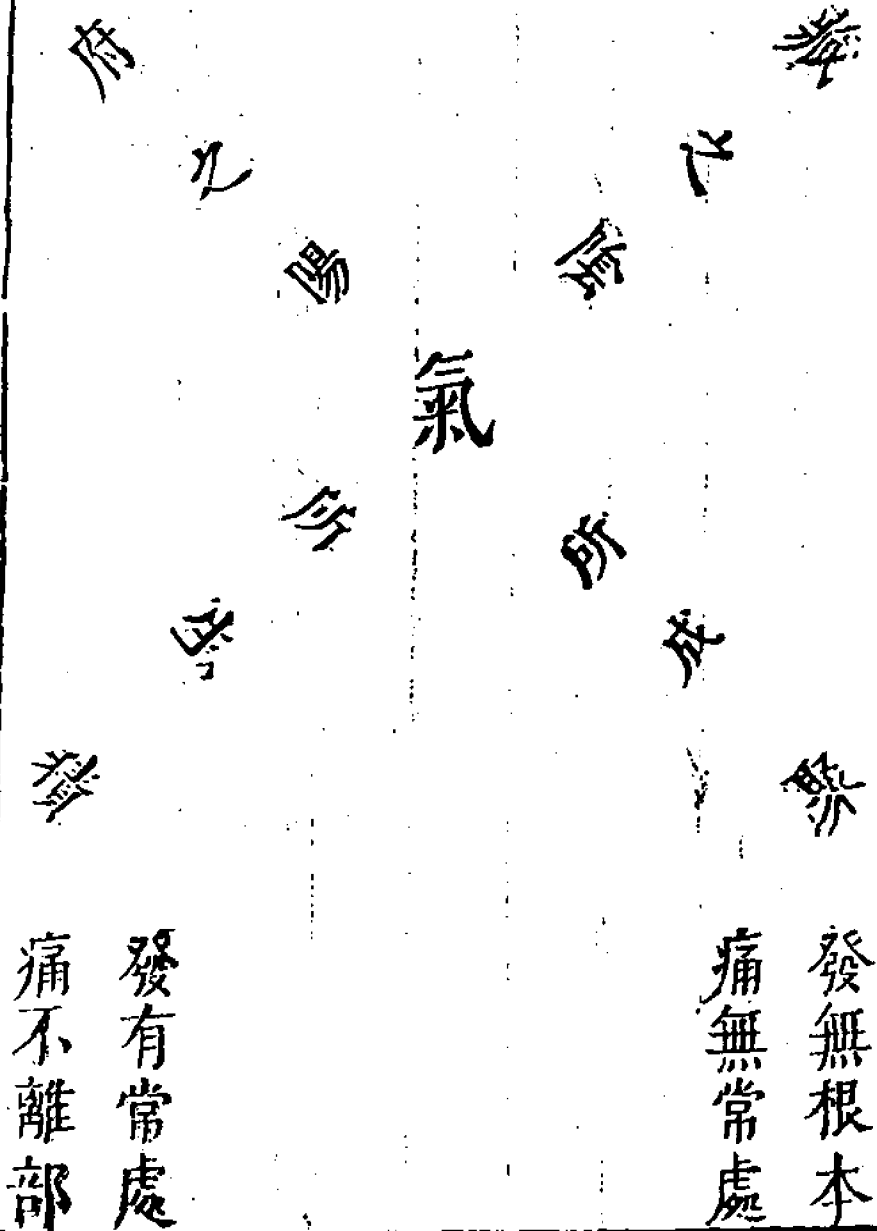 藏之陰
氣
所積
府之陽
所成聚
發無根本
痛無常處
發有常處
痛不離部